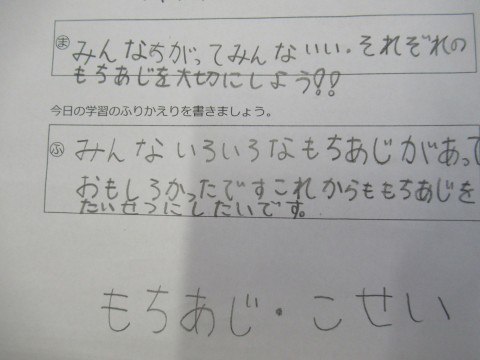 ま みんなちがってみんないい。それぞれの
もちあじを大切にしよう!!
今日の学習のふりかえりを書きましょう。
ふ みんないろいろなもちあじがあって
おもしろかったですこれからももちあじを
たいせつにしたいです。
もちあじ・こせい